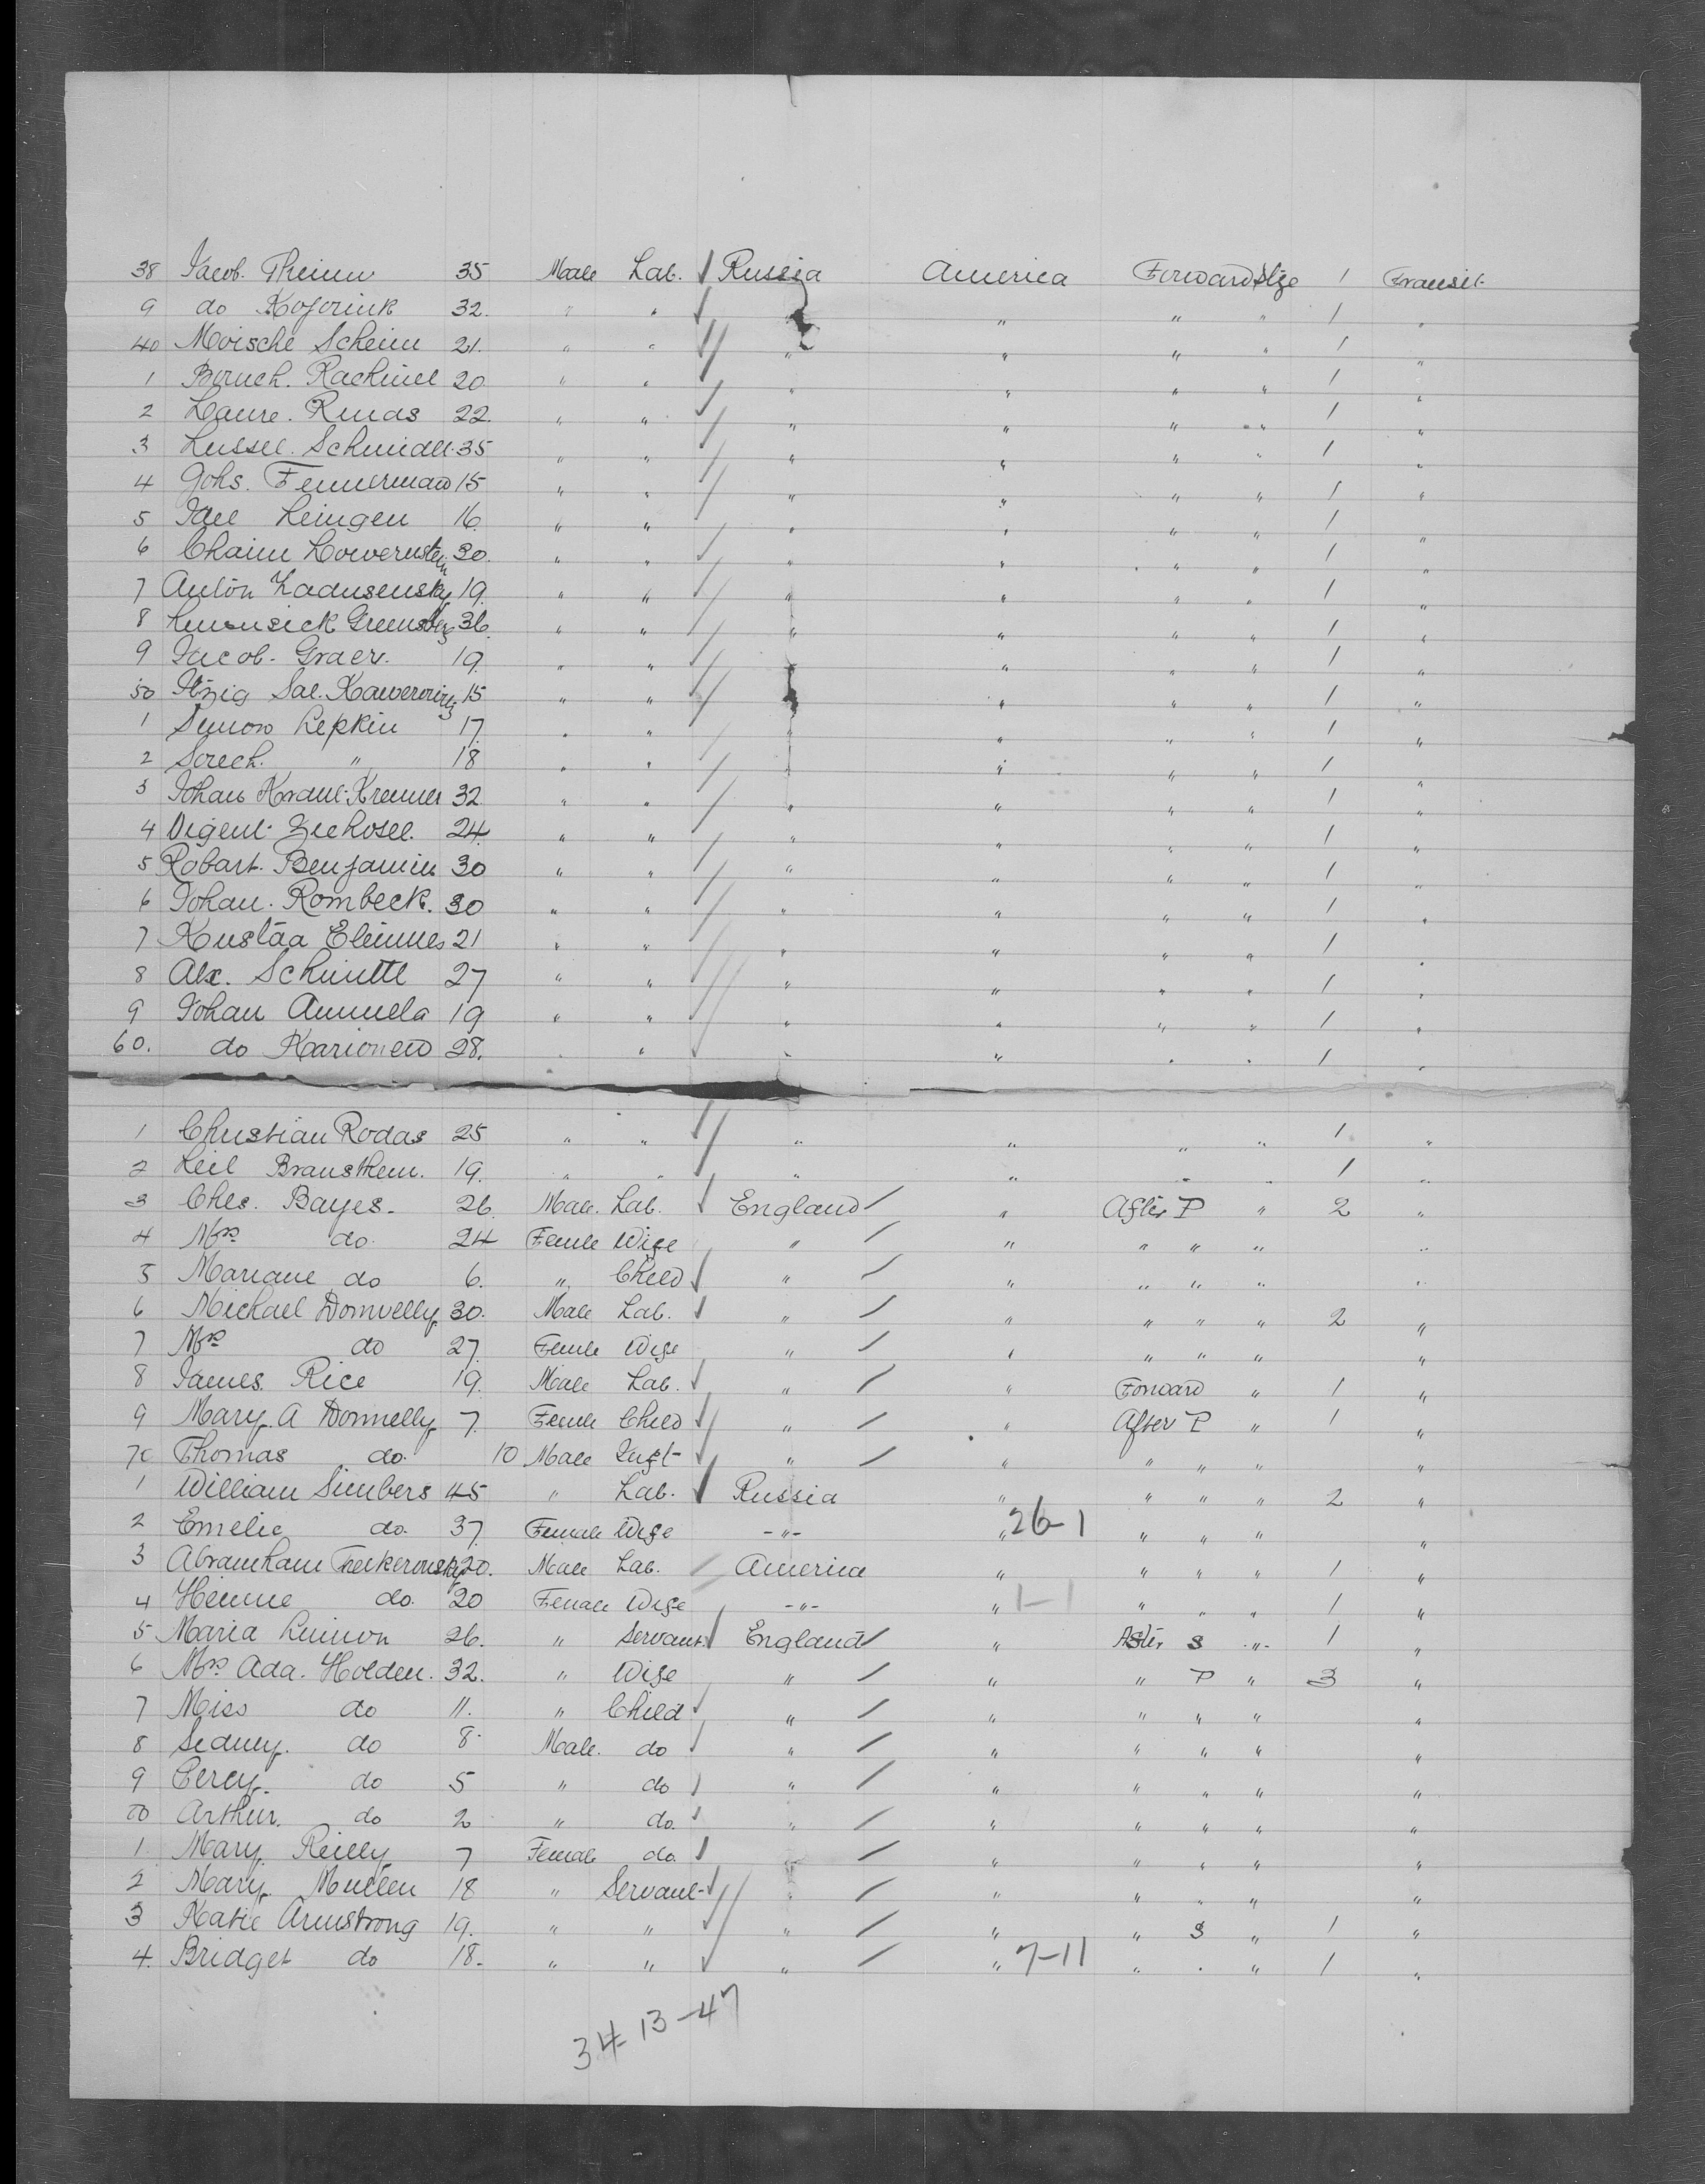 38 Jacob. Theinn 35 Male Lab. Russia America Forward Stge 1 Transit.
9 do Koforink 32. " " " " " " 1 "
40 Moische Schein 21. " " " " " " 1 "
1 Boruch. Rachmel 20 " " " " " " 1 "
2 Laure. Rmas 22. " " " " " " 1 "
3 Lussel. Schmidll. 35 " " " " " " 1 "
4 Johs. Femmerman 15 " " " " " " 1 "
5 Leingen 16 " " " " " " 1 "
6 Chaim Lowernstein 30. " " " " " " 1 "
7 Anton Ladusensky 19. " " " " " " 1 "
8 Greensberg 36. " " " " " " 1 "
9 Jacob. Graer. 19. " " " " " " 1 "
50 Itzig Sal. Kawerowitz 15 " " " " " " 1 "
1 Simon Lepkin 17. " " " " " " 1 "
2 Sorech. " 18 " " " " " " 1 "
3 Johan Kraul-Kremer 32. " " " " " " 1 "
4 24. " " " " " " 1 "
5 Robart. Benjamin 30 " " " " " " 1 "
6 Johan. Rombeck. 30 " " " " " " 1 "
7 Kustaa Elimmes 21 " " " " " " 1 "
8 Alx. Schmittl 27 " " " " " " 1 "
9 Johan Ammela 19 " " " " " " 1 "
60. do Karionen 28. " " " " " " 1 "
1 Christian Rodas 25 " " " " " " 1 "
2 Leil Bransthem. 19. " " " " " " 1 "
3 Chls. Bayes. 26. Male. Lab. England " After P " 2 "
4 Mrs do. 24 Femle Wife " " " " " "
5 Mariane do 6. " Child " " " " " "
6 Michael Donnelly 30. Male Lab. " " " " " 2 "
7 Mrs do 27. Femle Wife " " " " " "
8 James. Rice 19. Male Lab. " " Forward " 1 "
9 Mary. A Donnelly 7. Femle Child " " After P " 1 "
70 Thomas do. 10 Male Inft " " " " " "
1 William Simbers 45 " Lab. Russia " " " " 2 "
2 Emelie do. 37. Female Wife -"- " 26-1 " " " "
3 Abramham 20. Male Lab. America " " " " 1 "
4 Hinne do. 20 Female Wife -"- " 1-1 " " " 1 "
5 Maria Linnon 26. " Servant. England " After S -"- 1 "
6 Mrs Ada. Holden. 32. " Wife " " " P " 3 "
7 Miss do 11. " Child " " " " " "
8 Sedney. do 8. Male. do " " " " " "
9 Percy. do 5 " do " " " " " "
80 Arthur. do 2 " do. " " " " " "
1. Mary. Reilly 7 Female do. " " " " " "
2 Mary. Mullen 18 " Servant " " " " " "
3 Katie Armstrong 19. " " " " " S " 1 "
4. Bridget do 18. " " " " 7-11 " " " 1 "
34-13-47